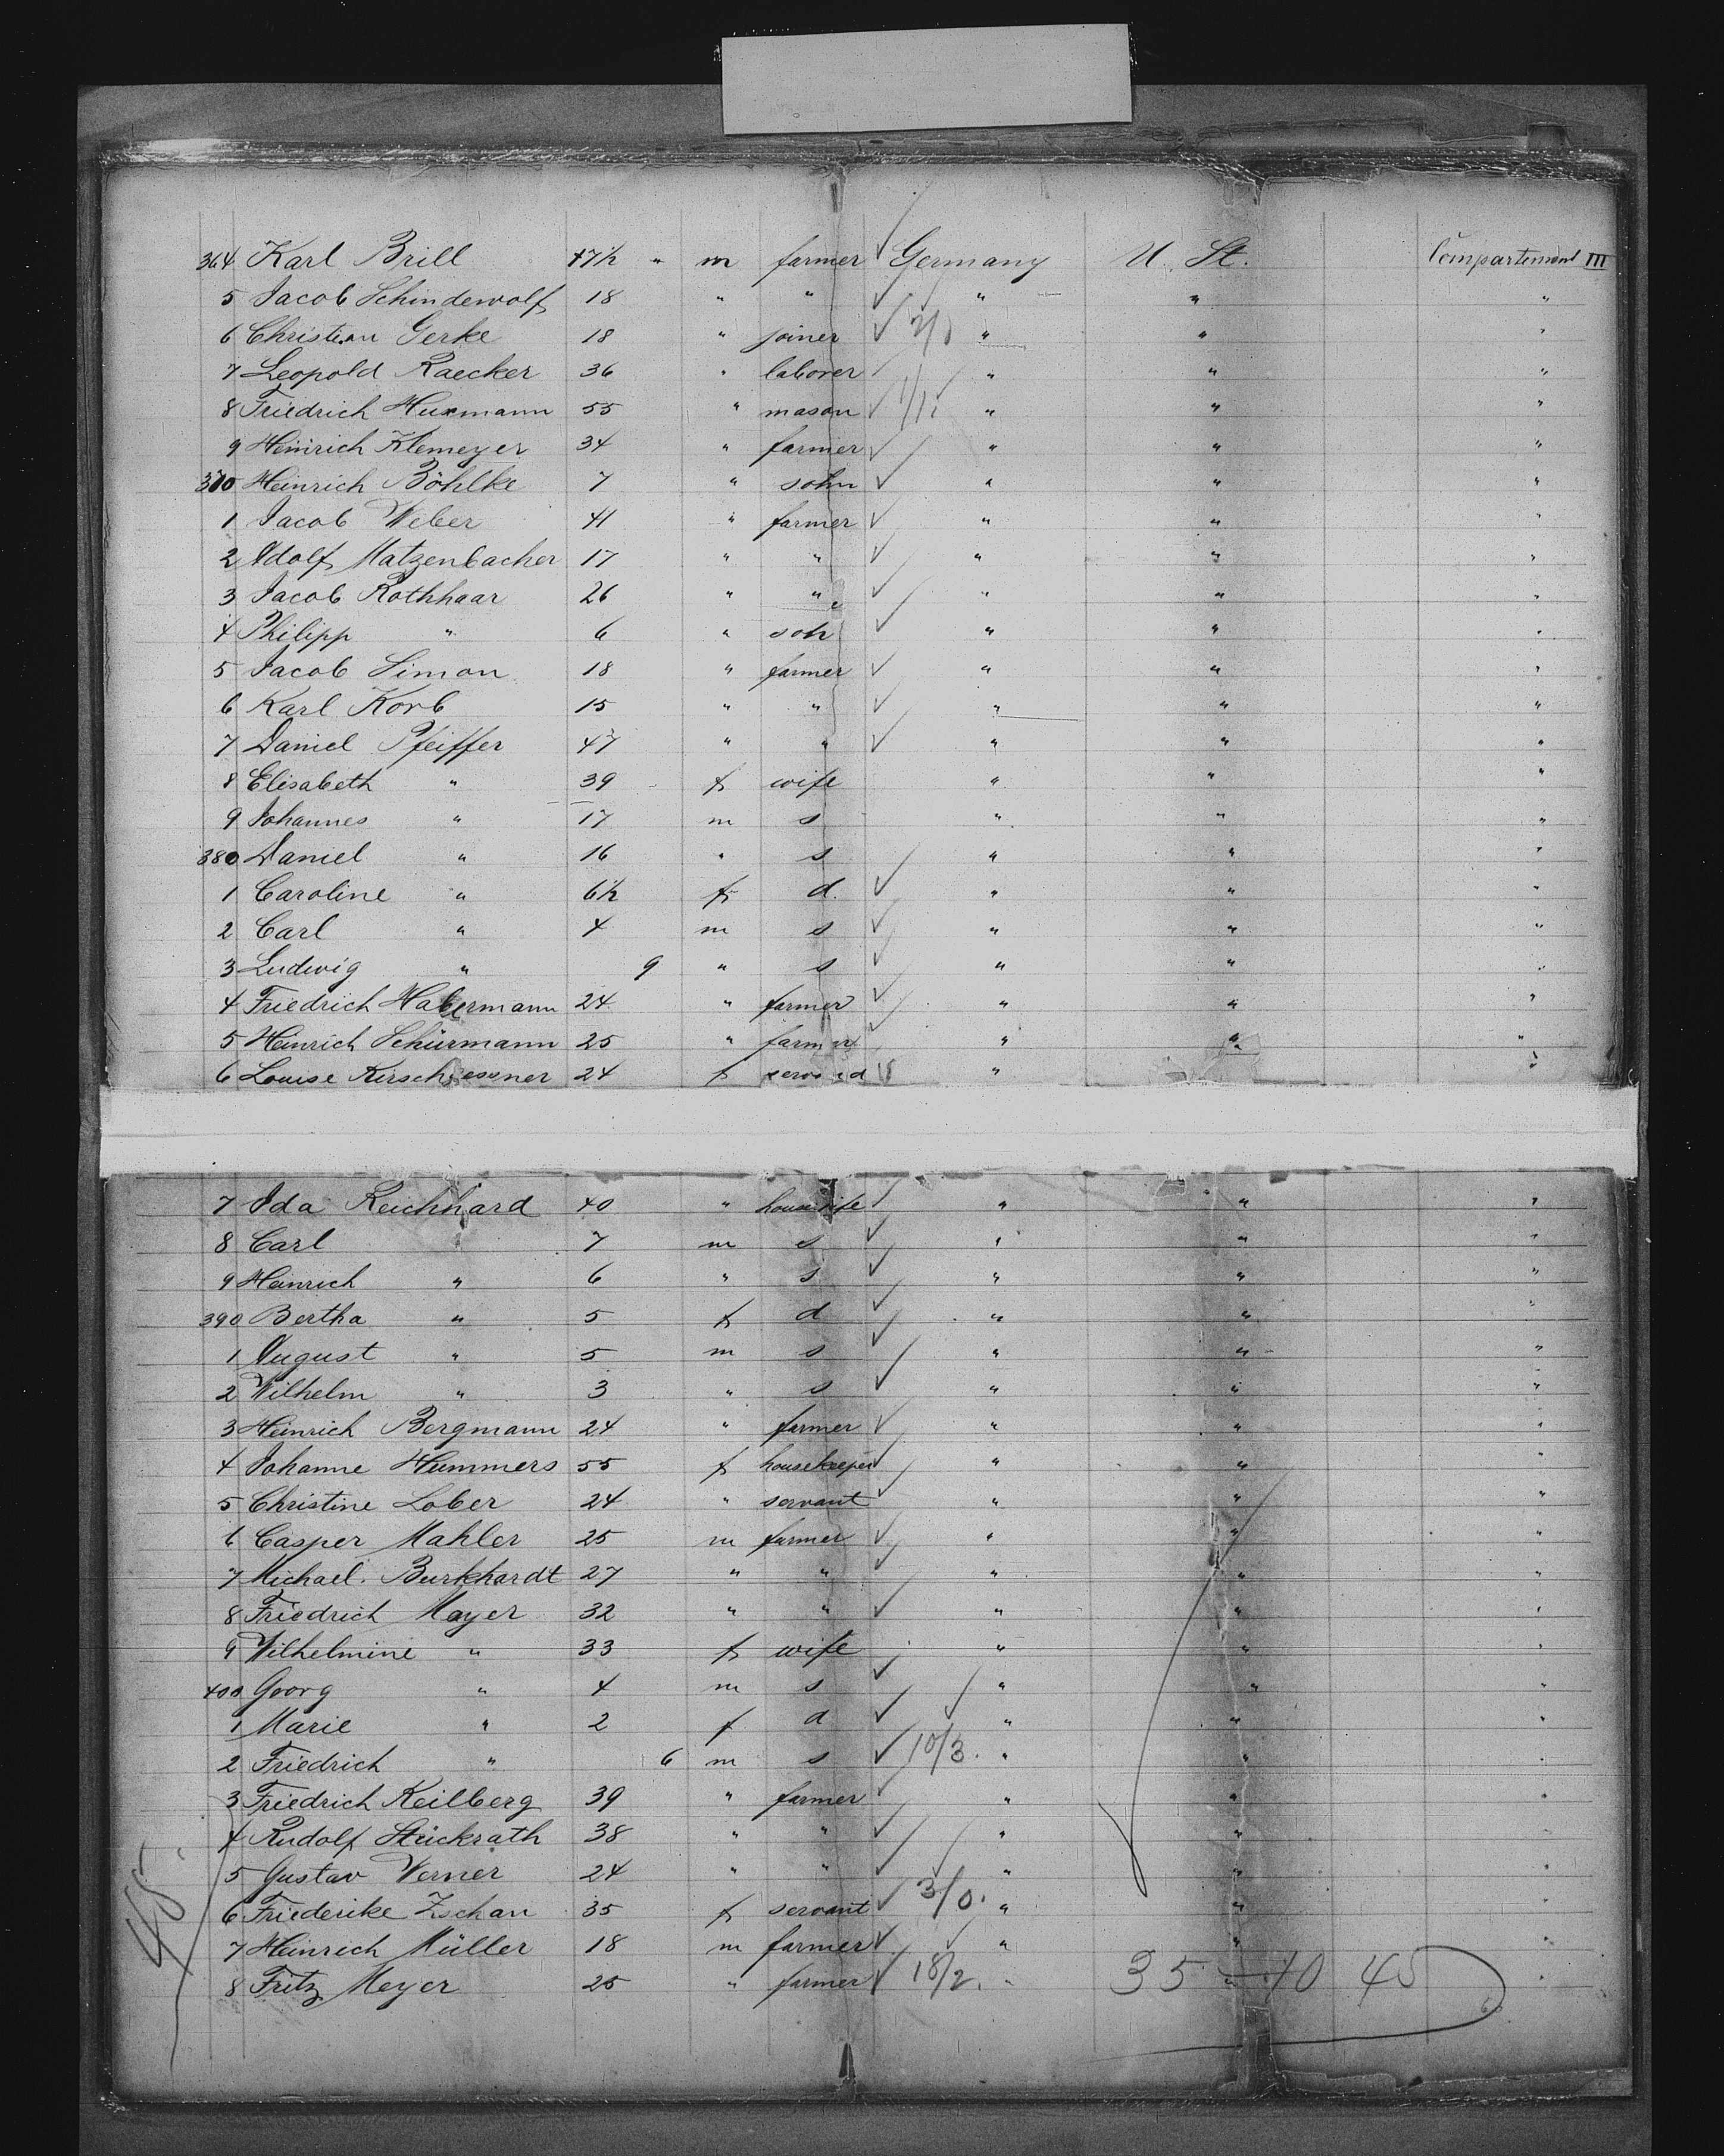 364 Karl Brill 17½ " m farmer Germany U. St. Compartement III
5 Jacob Schindewolf 18 " " " " "
6 Christian Gerke 18 " joiner 2/0 " " "
7 Leopold Raecker 36 " laborer " " "
8 Friedrich Huxmann 55 " mason 1/1 " " "
9 Heinrich Klemeyer 34 " farmer " " "
370 Heinrich Böhlke 7 " sohn " " "
1 Jacob Weber 41 " farmer " " "
2 Adolf Matzenbacher 17 " " " " "
3 Jacob Rothhaar 26 " " " " "
4 Philipp " 6 " soh " " "
5 Jacob Simon 18 " farmer " " "
6 Karl Korb 15 " " " " "
7 Daniel Pfeiffer 47 " " " " "
8 Elisabeth " 39 f wife " " "
9 Johannes " 17 m s " " "
380 Daniel " 16 " s " " "
1 Caroline " 6½ f d. " " "
2 Carl " 4 m s " " "
3 Ludwig " 9 " s " " "
4 Friedrich Habermann 24 " farmer " " "
5 Heinrich Schürmann 25 " farmer " " "
6 Louise 24 f " "
7 Ida Reichhard 40 " housewife " " "
8 Carl " 7 m s " " "
9 Heinrich " 6 " s " " "
390 Bertha " 5 f d " " "
1 August " 5 m s " " "
2 Wilhelm " 3 " s " " "
3 Heinrich Bergmann 24 " farmer " " "
4 Johanne Hummers 55 f housekeeper " " "
5 Christine Lober 24 " servant " " "
6 Casper Mahler 25 m farmer " " "
7 Michael Burkhardt 27 " " " " "
8 Friedrich Mayer 32 " " " " "
9 Wilhelmine " 33 f wife " " "
400 Georg " 4 m s " " "
1 Marie " 2 f d " " "
2 Friedrich " 6 m s 10/3. " " "
3 Friedrich Keilberg 39 " farmer " " "
4 Rudolf Stückrath 38 " " " " "
5 Gustav Werner 24 " " " " "
6 Friederike Zschau 35 f servant 3/0. " " "
7 Heinrich Müller 18 m farmer " " "
8 Fritz Meyer 25 " farmer 18/2. " 35 – 10 45 "
45.